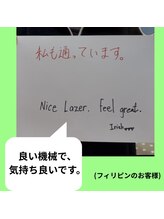 私も通っています。
Nice Lazer. Feel great.
Irish
良い機械で、
気持ち良いです。
(フィリピンのお客様)